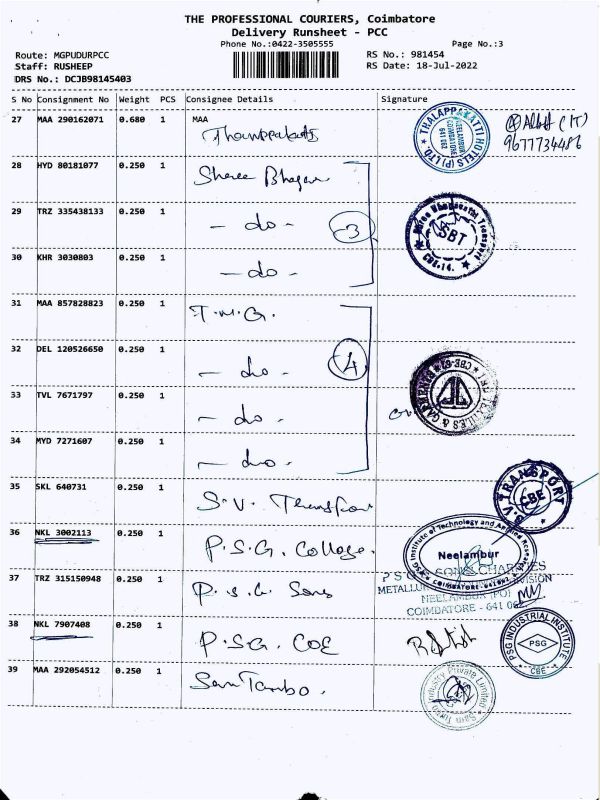 THE PROFESSIONAL COURIERS, Coimbatore
Delivery Runsheet - PCC
Phone No.:0422-3505555
Page No.:3
Route: MGPUDURPCC
RS No.: 981454
Staff: RUSHEEP
RS Date: 18-Jul-2022
DRS No.: DCJB98145403
S No Consignment No Weight PCS Consignee Details Signature
27 MAA 290162071 0.680 1 MAA
THALAPPAKATTI HOTELS (P) LTD
COIMBATORE
641 062
(IT)
9677734486
28 HYD 80181077 0.250 1 Shree Bhagav
29 TRZ 335438133 0.250 1 - do - 3
Shree Bhagavathi Transport
SBT
CBE-14.
30 KHR 3030803 0.250 1 - do -
31 MAA 857828823 0.250 1 T.M.G.
32 DEL 120526650 0.250 1 - do - 4
33 TVL 7671797 0.250 1 - do -
TEXTILES & GARMENTS
CBE-62
34 MYD 7271607 0.250 1 - do -
35 SKL 640731 0.250 1 S.V. Transpor
S.V. TRANSPORT
CBE
36 NKL 3002113 0.250 1 P.S.G. College.
PSG Institute of Technology and Applied Research
Neelambur
COIMBATORE - 641 062
37 TRZ 315150948 0.250 1 P.S.G Sons
P S G SONS CHARITIES
METALLURGY DIVISION
NEELAMBUR (PO)
COIMBATORE - 641 062
38 NKL 7907408 0.250 1 P.S.G COE
PSG INDUSTRIAL INSTITUTE
PSG
CBE
39 MAA 292054512 0.250 1 Sam Tambo.
Sam Turbo Industry Private Limited